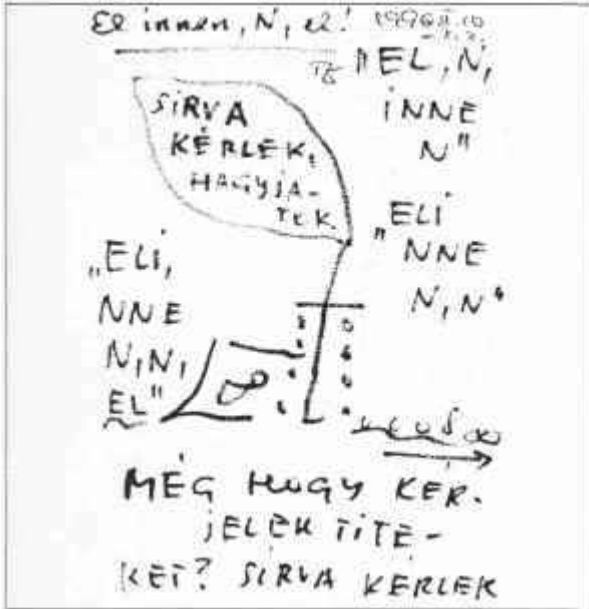 El innen, N, el!
"EL, N,
INNE
N"
SÍRVA
KÉRLEK,
HAGYJA-
TEK
"ELI
NNE
N, N"
"ELI,
NNE
N, N,
EL"
MÉG HOGY KÉR-
JELEK TITE-
KET? SÍRVA KÉRLEK